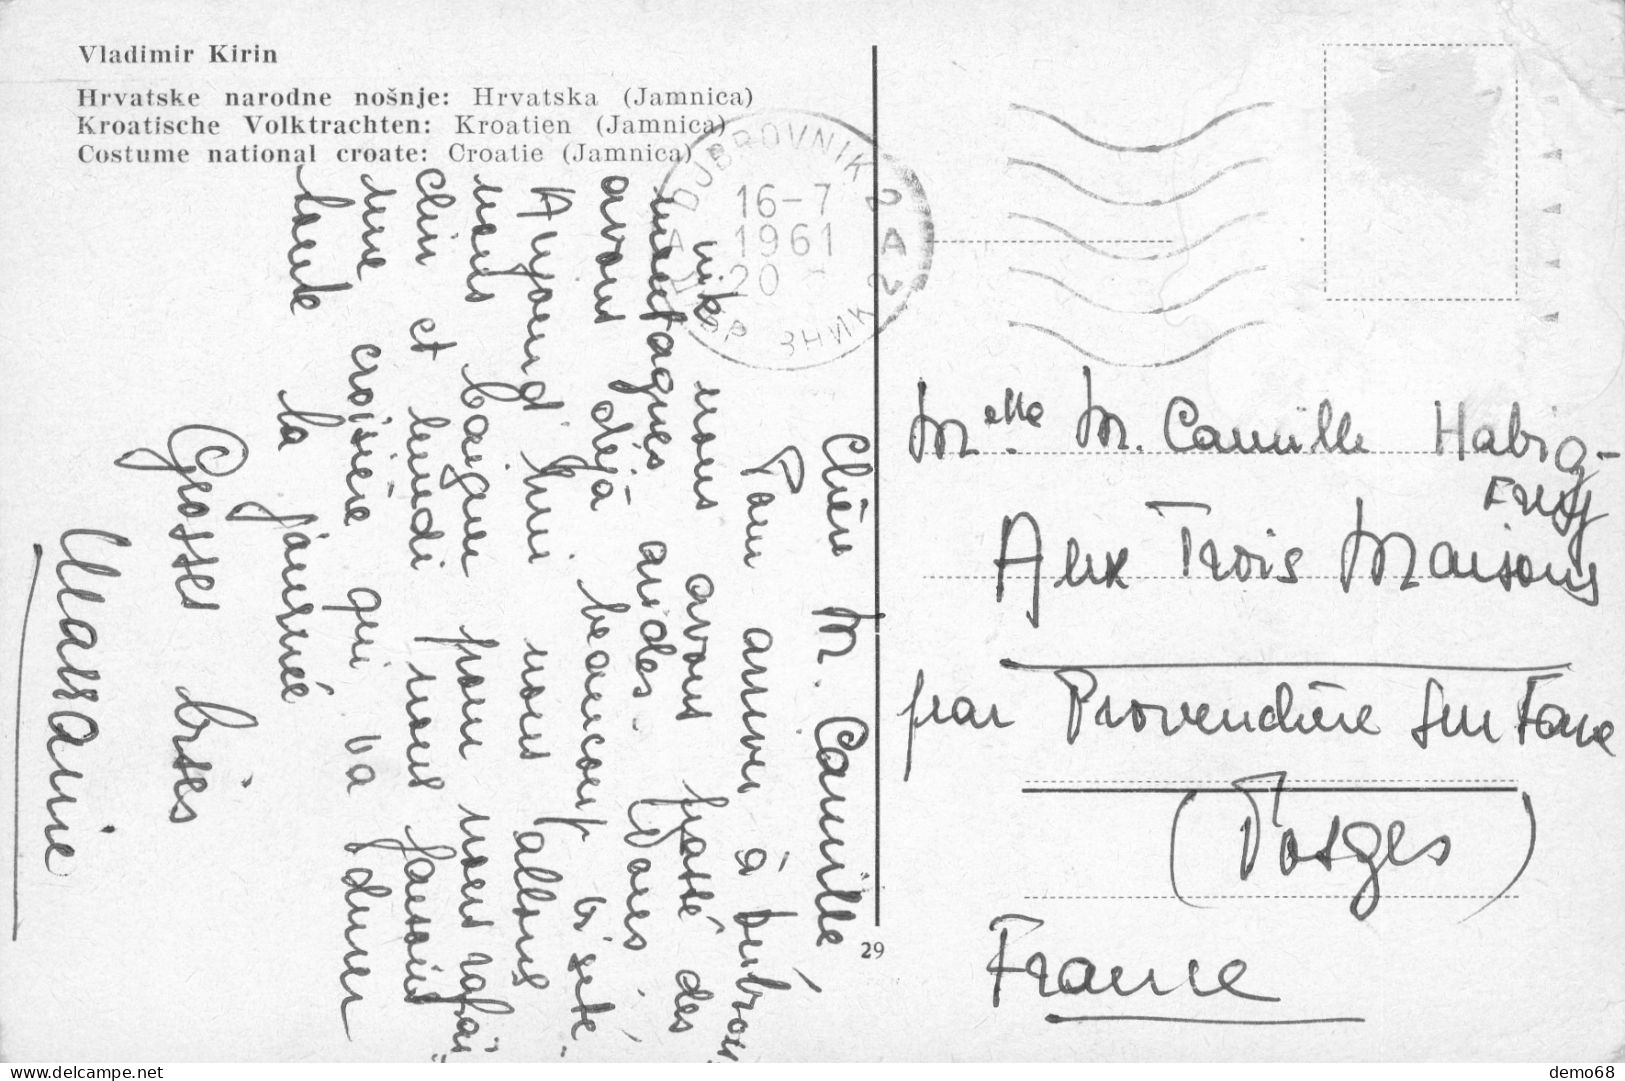 Vladimir Kirin
Hrvatske narodne nošnje: Hrvatska (Jamnica)
Kroatische Volktrachten: Kroatien (Jamnica)
Costume national croate: Croatie (Jamnica)
DUBROVNIK 2
16-7
1961
20
A
29
Chère M. Camille
Pour arriver à Dubrov
nik nous avons passé des
montagnes arides. Nous
avons déjà beaucoup visité.
Aujourd'hui nous allons
nous baigner pour nous rafraî
chir et lundi nous faisons
une croisière qui va durer
toute la journée
Grosses bises
Massanie
Melle M. Camille Habig-
Aux Trois Maisons
par Provenchère sur Fave
(Vosges)
France
demo68